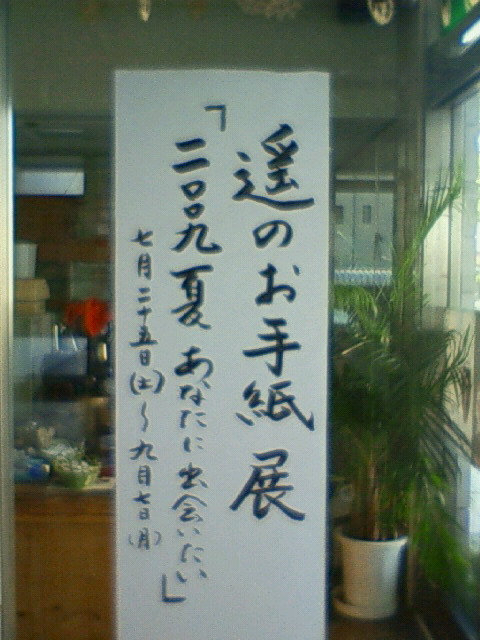 遥のお手紙展
「二〇〇九夏 あなたに出会いたい」
七月二十五日(土)〜九月七日(月)